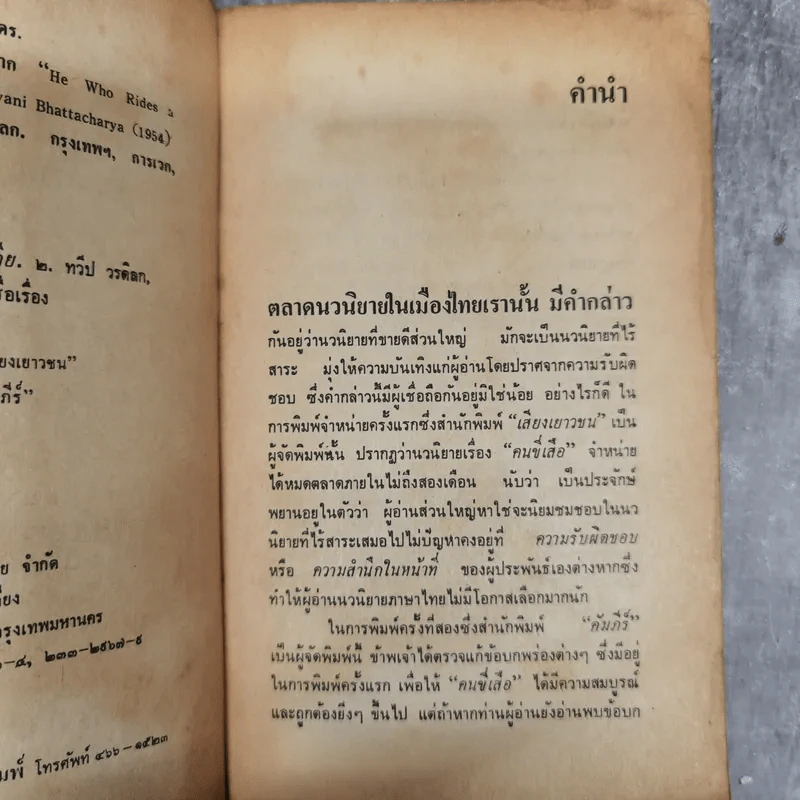 คร.
าก “He Who Rides a
vani Bhattacharya (1954)
ลก. กรุงเทพฯ, การเวก,
๒. ทวีป วรดิลก,
ชื่อเรื่อง
ยงเยาวชน”
ภีร์”
ย จำกัด
ยง
กรุงเทพมหานคร
–๔, ๒๓๓–๒๙๖๗–๙
มพ์ โทรศัพท์ ๔๖๖–๑๕๒๓
คำนำ
ตลาดนวนิยายในเมืองไทยเรานั้น มีคำกล่าว
กันอยู่ว่านวนิยายที่ขายดีส่วนใหญ่ มักจะเป็นนวนิยายที่ไร้
สาระ มุ่งให้ความบันเทิงแก่ผู้อ่านโดยปราศจากความรับผิด
ชอบ ซึ่งคำกล่าวนี้มีผู้เชื่อถือกันอยู่มิใช่น้อย อย่างไรก็ดี ใน
การพิมพ์จำหน่ายครั้งแรกซึ่งสำนักพิมพ์ “เสียงเยาวชน” เป็น
ผู้จัดพิมพ์นั้น ปรากฏว่านวนิยายเรื่อง “คนขี่เสือ” จำหน่าย
ได้หมดตลาดภายในไม่ถึงสองเดือน นับว่า เป็นประจักษ์
พยานอยู่ในตัวว่า ผู้อ่านส่วนใหญ่หาใช่จะนิยมชมชอบในนว
นิยายที่ไร้สาระเสมอไปไม่ปัญหาคงอยู่ที่ ความรับผิดชอบ
หรือ ความสำนึกในหน้าที่ ของผู้ประพันธ์เองต่างหากซึ่ง
ทำให้ผู้อ่านนวนิยายภาษาไทยไม่มีโอกาสเลือกมากนัก
ในการพิมพ์ครั้งที่สองซึ่งสำนักพิมพ์ “คัมภีร์”
เป็นผู้จัดพิมพ์นี้ ข้าพเจ้าได้ตรวจแก้ข้อบกพร่องต่างๆ ซึ่งมีอยู่
ในการพิมพ์ครั้งแรก เพื่อให้ “คนขี่เสือ” ได้มีความสมบูรณ์
และถูกต้องยิ่งๆ ขึ้นไป แต่ถ้าหากท่านผู้อ่านยังอ่านพบข้อบก